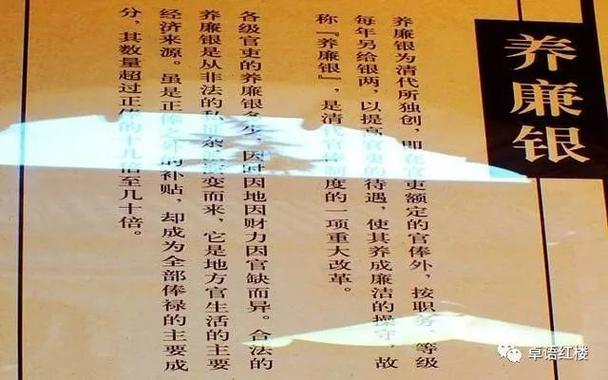 养廉银
养廉银为清代所独创，即在官吏额定的官俸外，按职务、等级
每年另给银两，以提高官吏的待遇，使其养成廉洁的操守，故
称『养廉银』，是清代官俸制度的一项重大改革。
各级官吏的养廉银多少，因时因地因财力因官缺而异。合法的
养廉银是从非法的私杂变而来，它是地方官生活的主要
经济来源。虽是正俸之外的补贴，却成为全部俸禄的主要成
分，其数量超过正俸的十几倍至几十倍。
卓语红楼